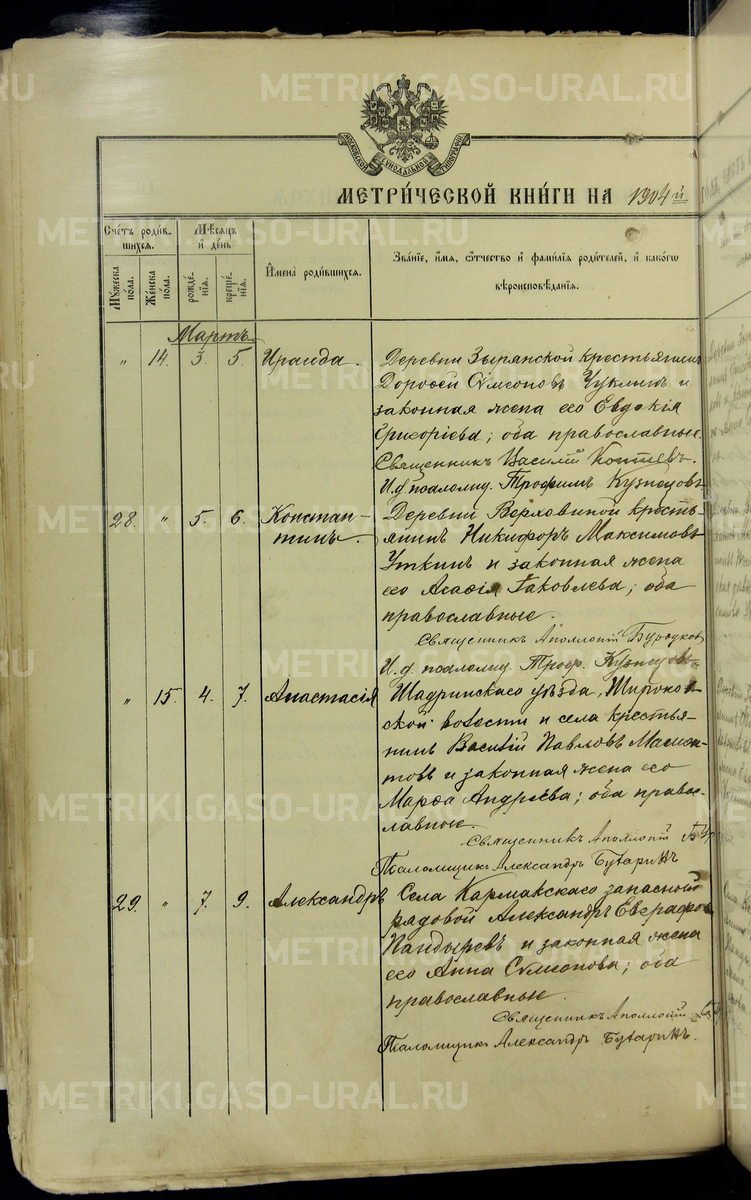 МЕТРИ́ЧЕСКОЙ КНИ́ГИ НА 1904й
Сче́тъ роди́в-
шихся.
Мѣ́сяцъ
и́ де́нь
Му́жеска
по́ла.
Же́нска
по́ла.
рожде́-
нїя.
креще́-
нїя.
И́мена̀ роди́вшихся.
Зва́нїе, и́мя, ѻ҆́тчество и҆ фами́лїя роди́телей, и҆ како́гѡ
вѣроисповѣ́данїя.
Мартъ
" 14. 3. 5. Ираида.
Деревни Зырянской крестьянинъ
Дороѳей Сѵмеоновъ Чуклинъ и
законная жена его Евдокія
Григоріева; оба православные.
Священникъ Василій
И. д. псаломщ. Трофимъ Кузнецовъ
28. " 5. 6. Констан-
тинъ.
Деревни Верховиной кресть-
янинъ Никифоръ Максимовъ
Уткинъ и законная жена
его Агаѳія Іаковлева; оба
православные.
Священникъ Аполлоній Бурдуков
И. д. псаломщ. Троф. Кузнецовъ
" 15. 4. 7. Анастасія
Шадринскаго уѣзда, Широков-
ской волости и села крестья-
нинъ Василій Павловъ Мамон-
товъ и законная жена его
Марѳа Андреева; оба право-
славные.
Священникъ Аполлоній Бур
Псаломщикъ Александръ Бутаринъ
29. " 7. 9. Александръ
Села Кармакскаго запасной
рядовой Александръ Евграфов
Пандыревъ и законная жена
его Анна Сѵмеонова; оба
православные.
Священникъ Аполлоній Бур
Псаломщикъ Александръ Бутаринъ.
METRIKI.GASO-URAL.RU